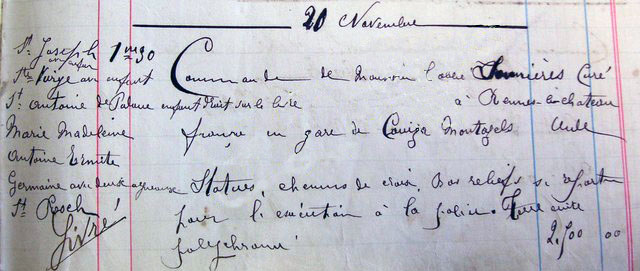 20 Novembre
St Joseph 1m30
avec enfant
Ste Vierge avec enfant
St Antoine de Padoue enfant droit sur le livre
Marie Madeleine
Antoine Ermite
Germaine avec deux agneaux
St Roch
Livré
Commande de Monsieur l'abbé Saunières Curé
à Rennes-le-château
franco en gare de Couiza Montazels Aude
Statues, chemins de croix, Bas reliefs se reporter
pour l'exécution à la police. Terre cuite
polychromé
2.500 00